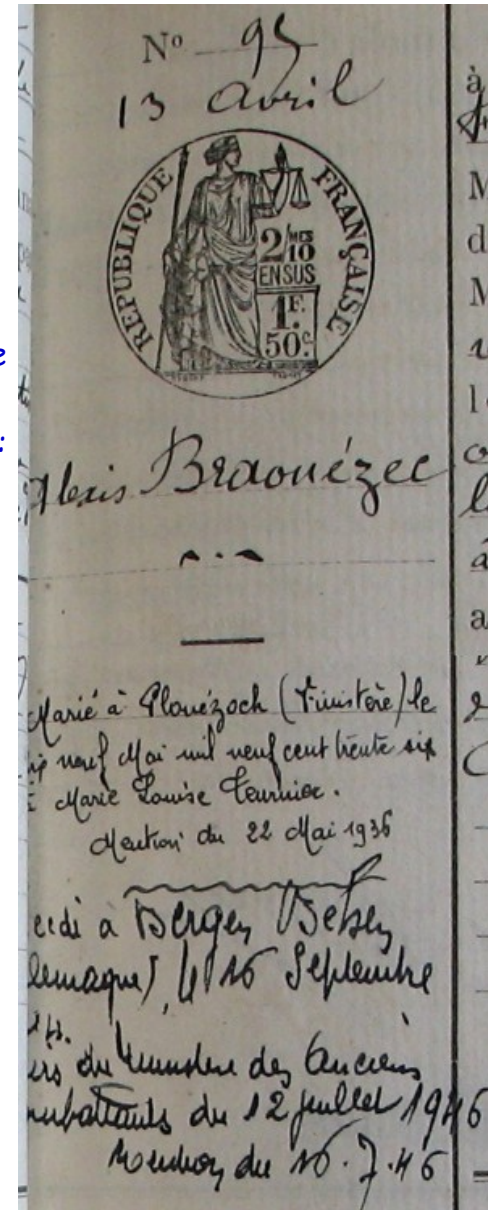 N° 95
13 avril
REPUBLIQUE FRANÇAISE
2/10 MES
EN SUS
1F.
50c.
Alexis Braouézec
Marié à Plouézoch (Finistère) le
dix neuf Mai mil neuf cent trente six
à Marie Louise Teurnier.
Mention du 22 Mai 1936
cédé à Bergen Belsen
lemagne) le 16 Septembre
du Ministère des Anciens
mbattants du 12 juillet 1946
Mention du 16.7.46